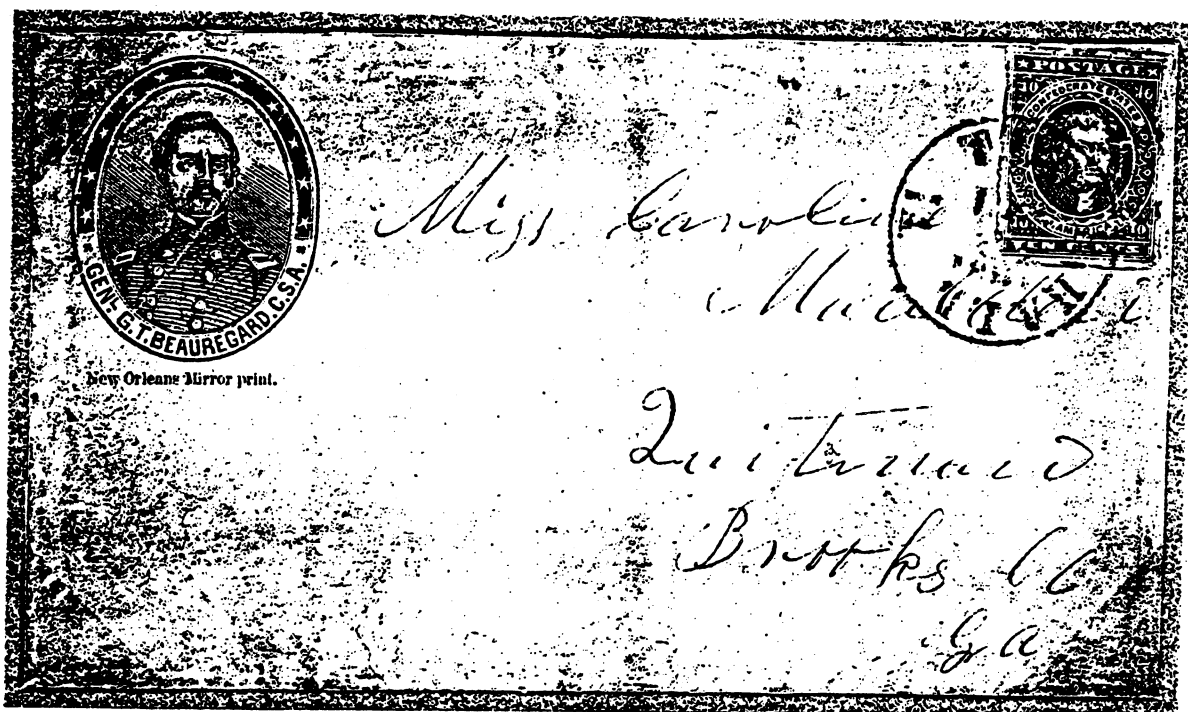 GENL. G.T. BEAUREGARD. C.S.A.
New Orleans Mirror print.
POSTAGE
10 10
CONFEDERATE STATES
10 10
TEN CENTS
Miss Caroline
Quitman
Brooks Co
Ga